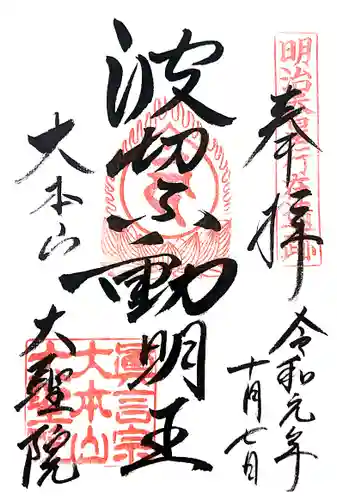 奉拝
令和元年
十月七日
波切不動明王
大本山
大聖院
真言宗
大本山
大聖院